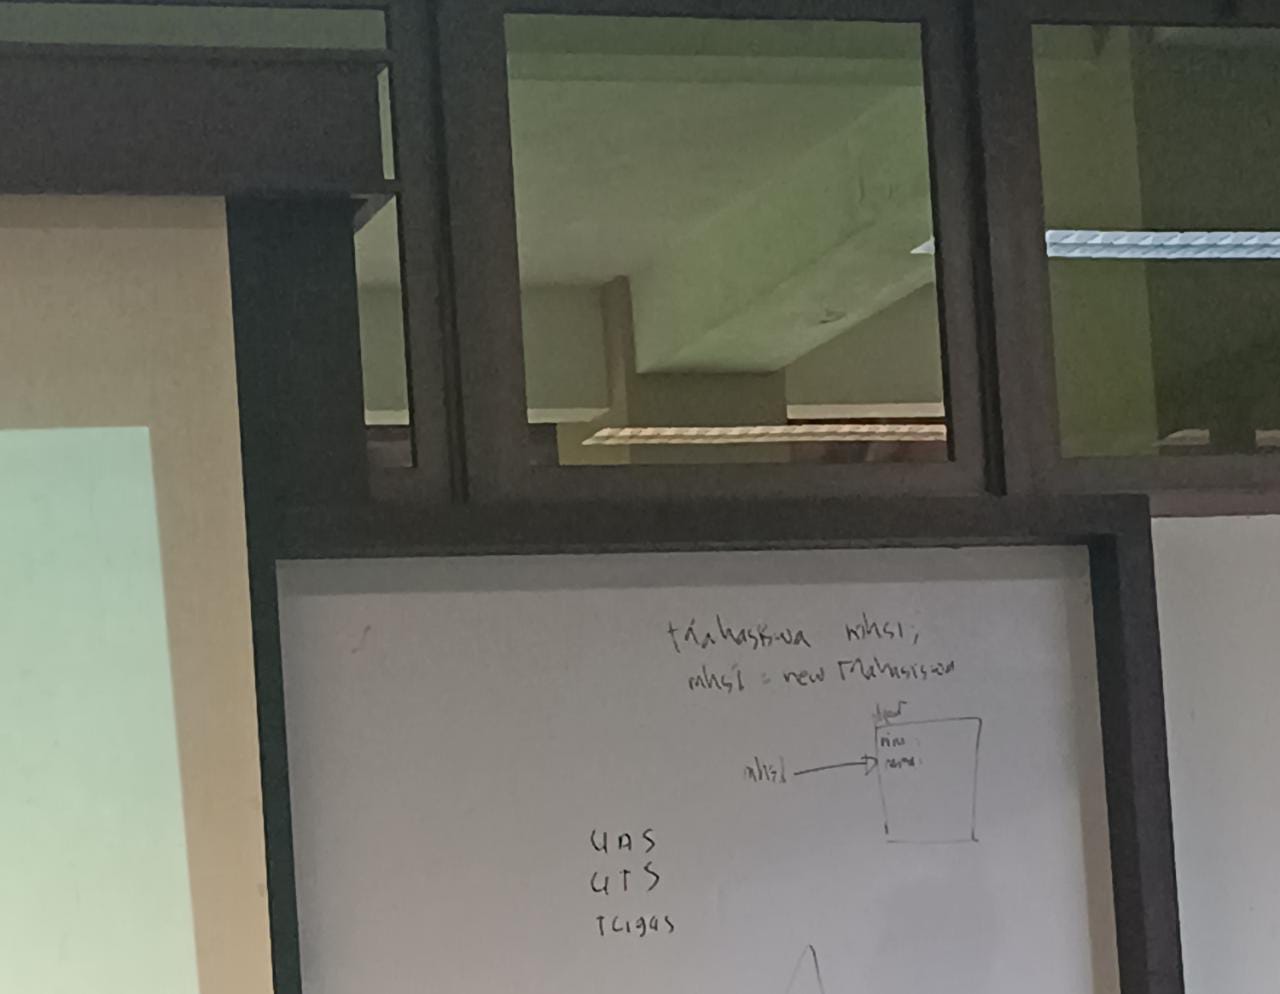 Mahasiswa mhs1;
mhs1 = new Mahasiswa
nim :
nama :
mhs1
UAS
UTS
TUgas